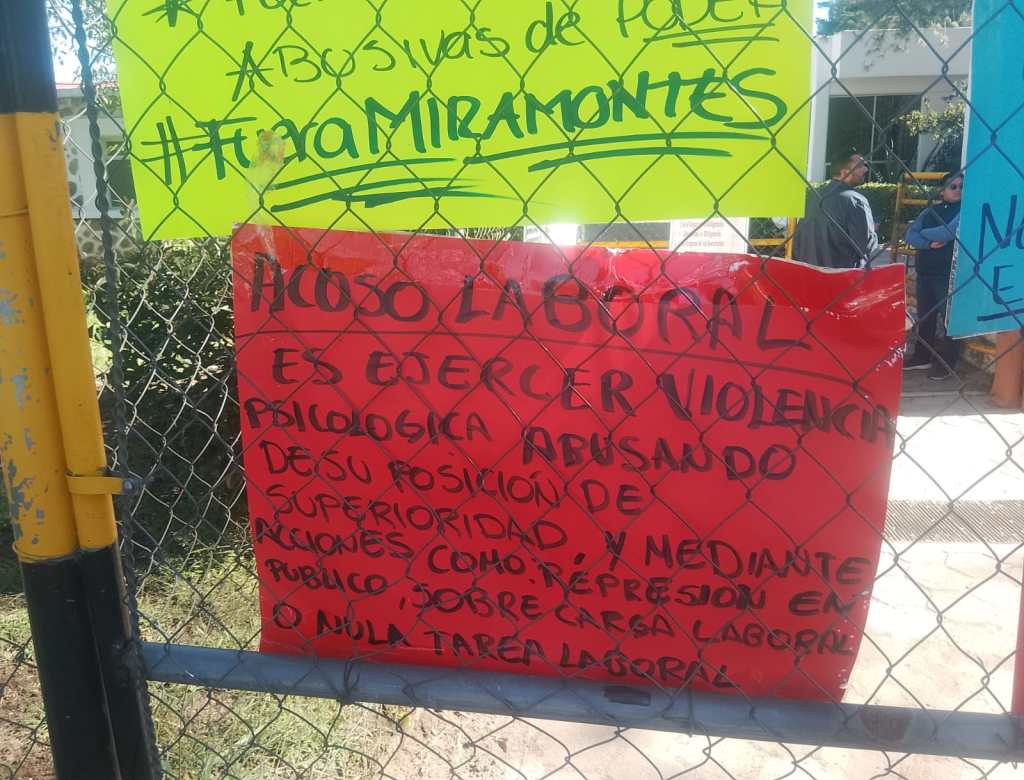 ABUSIVAS de PODER
#Fuera MIRAMONTES
ACOSO LABORAL
ES EJERCER VIOLENCIA
PSICOLOGICA ABUSANDO
DE SU POSICIÓN DE
SUPERIORIDAD, Y MEDIANTE
ACCIONES COMO: REPRESION EN
PUBLICO, SOBRE CARGA LABORAL
O NULA TAREA LABORAL